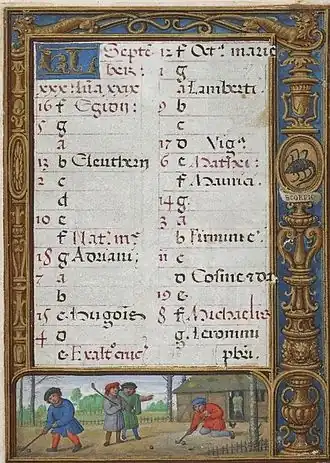 KL Septē
ber:
xxx: lūa xxix
16 f Egidii:
5 g
a
13 b Eleuthern
2 c
d
10 e
f Nat: m⁹
18 g Adriani:
7 a
b
15 c Hugois
4 d
e Exalt: cruc⁹
12 f Oct⁹ marie
1 g
a Lamberti
9 b
c
17 d Vig⁹
6 e Mathei:
f Maurici.
14 g
3 a
b Firmini e⁹.
11 c
d Cosme & da
19 e
8 f Michaelis
g Jeronimi
pbri.
SCORPIO